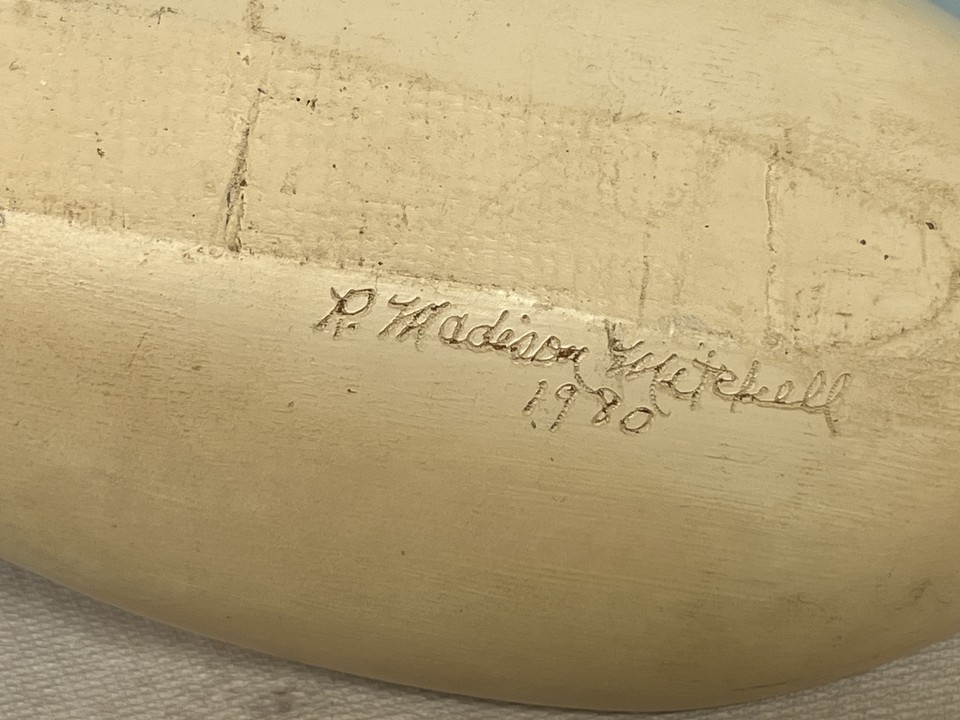 R. Madison Mitchell
1980